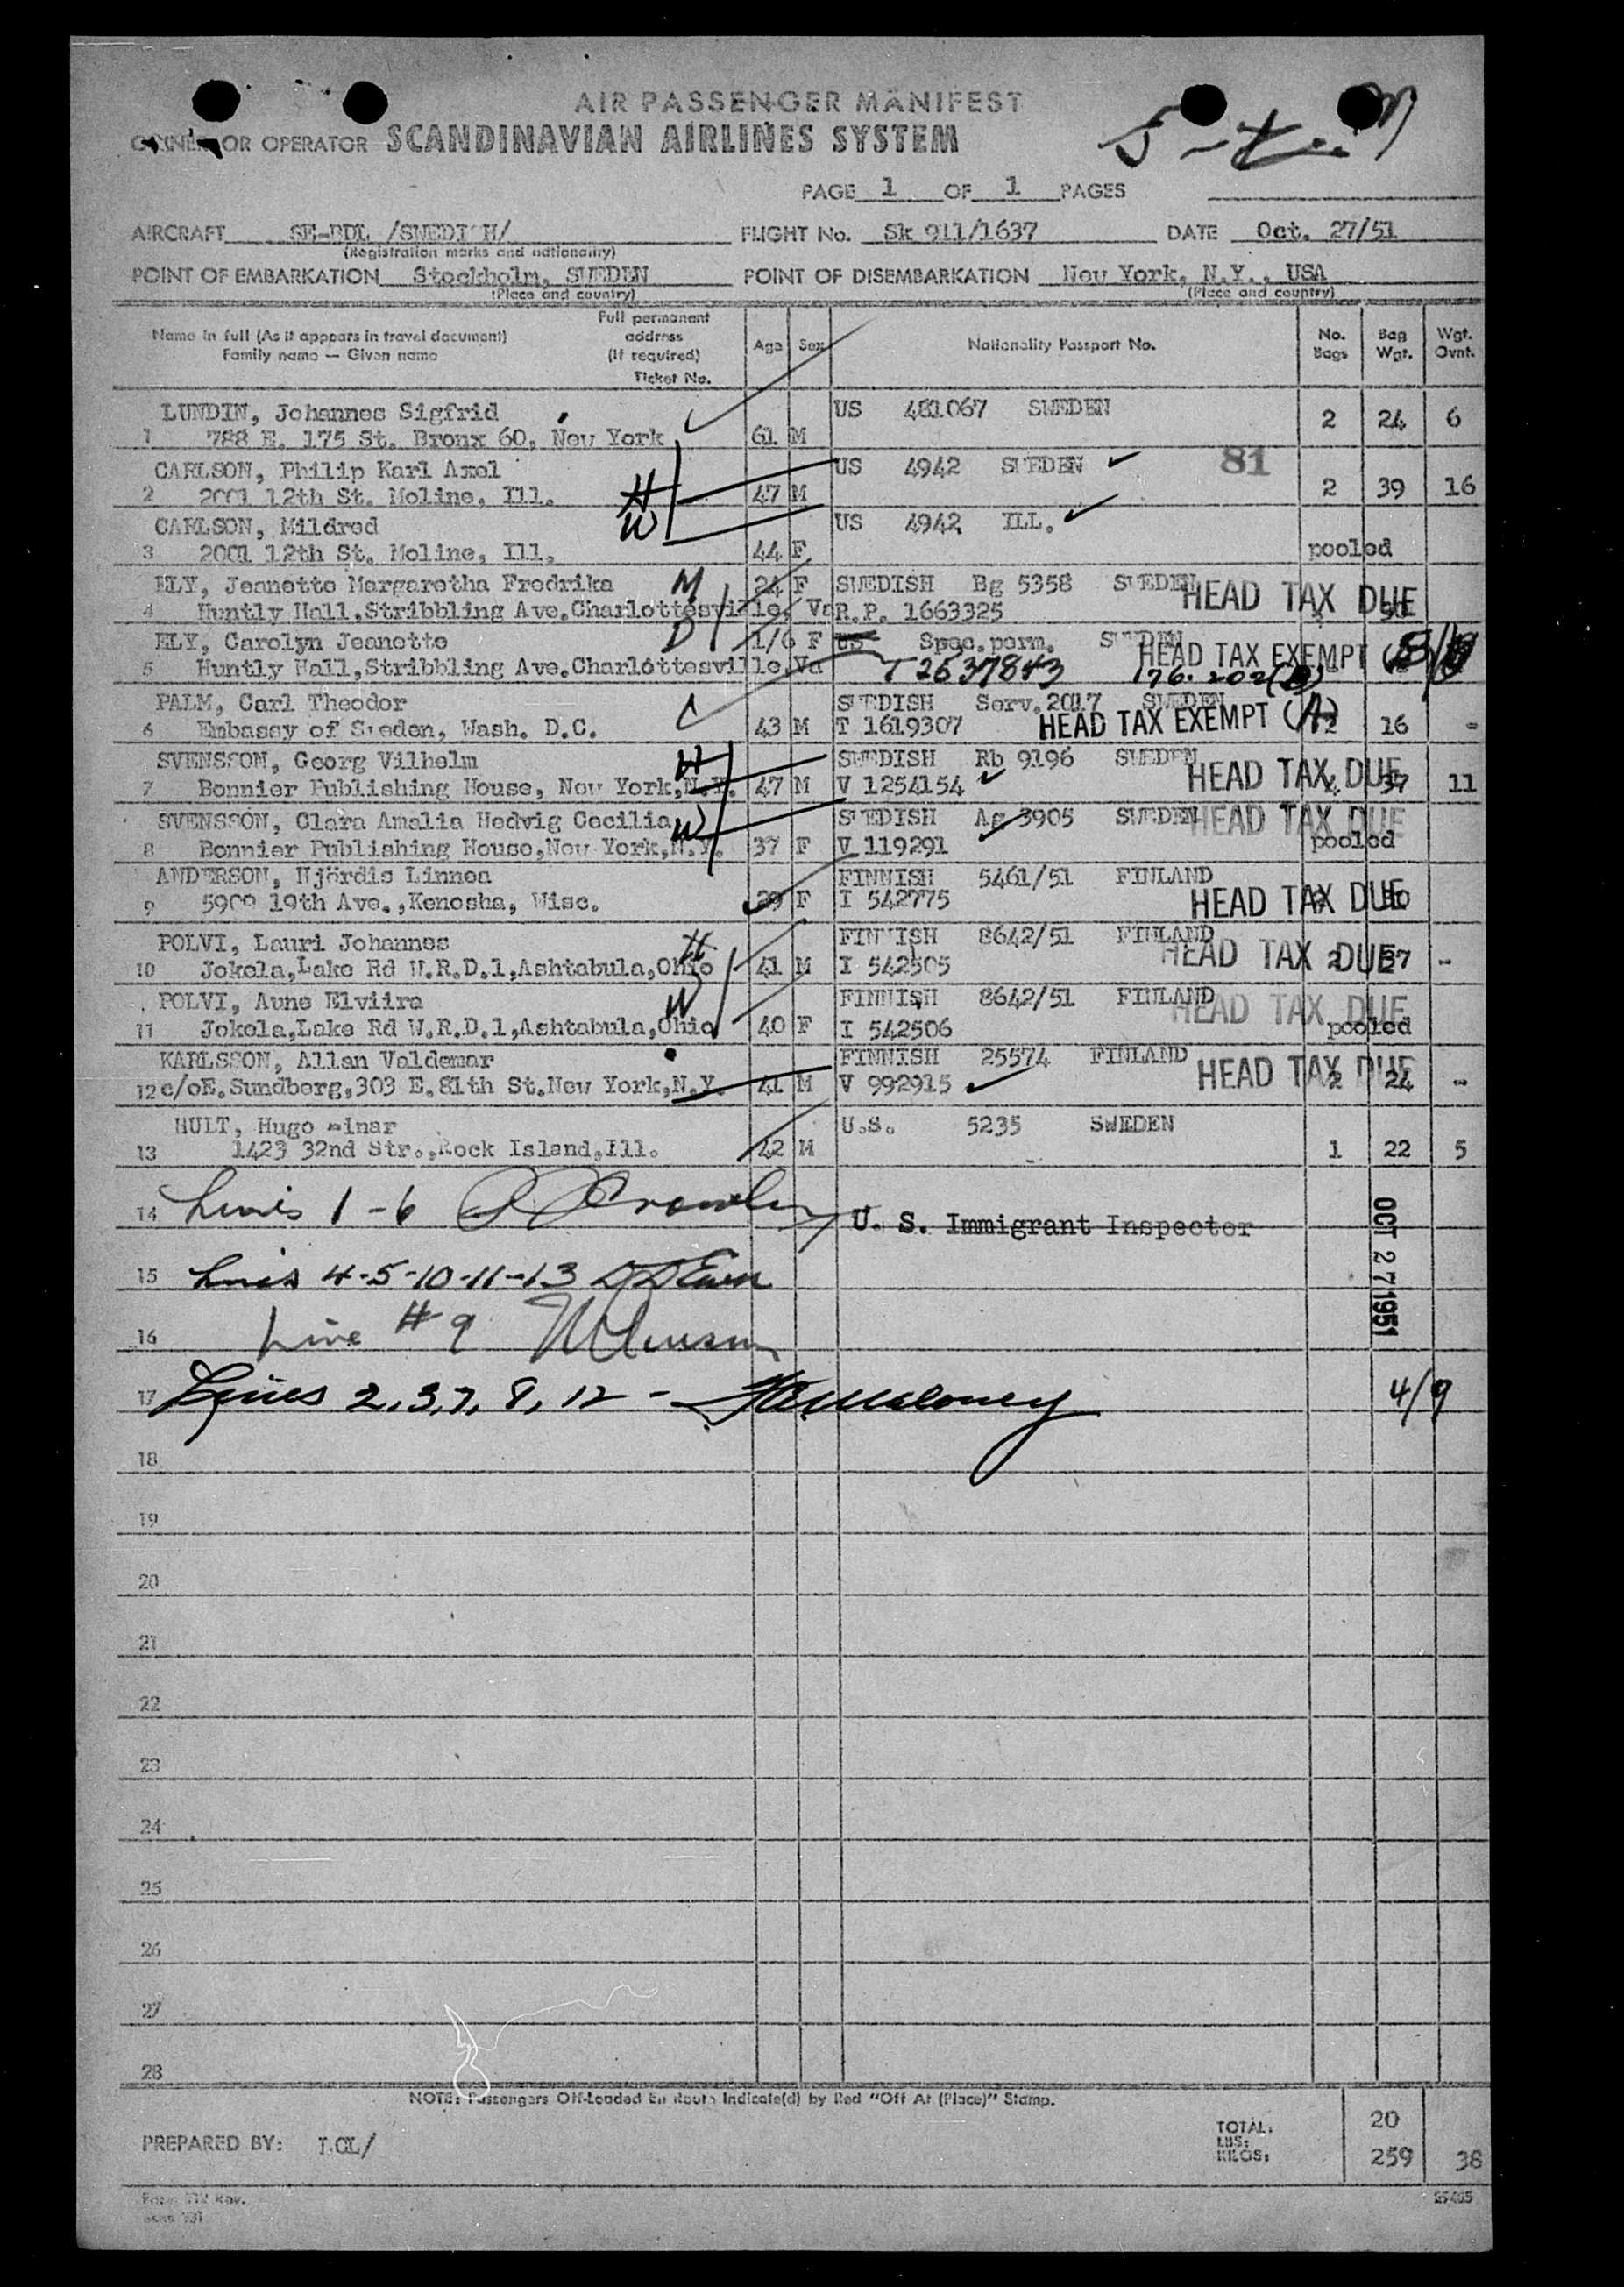 AIR PASSENGER MANIFEST
OR OPERATOR SCANDINAVIAN AIRLINES SYSTEM
PAGE 1 OF 1 PAGES
AIRCRAFT SE-BDL /SWEDISH/ FLIGHT No. Sk 911/1637 DATE Oct. 27/51
(Registration marks and nationality)
POINT OF EMBARKATION Stockholm, SWEDEN POINT OF DISEMBARKATION New York, N.Y., USA
(Place and country) (Place and country)
Name in full (As it appears in travel document) Family name — Given name Full permanent address (If required) Ticket No. Age Sex Nationality Passport No. No. Bags Bag Wgt. Wgt. Ovnt.
LUNDIN, Johannes Sigfrid US 481067 SWEDEN
1 788 E. 175 St. Bronx 60, New York 61 M 2 24 6
CARLSON, Philip Karl Axel US 4942 SWEDEN 81
2 2001 12th St. Moline, Ill. H 47 M 2 39 16
CARLSON, Mildred W US 4942 ILL.
3 2001 12th St. Moline, Ill. 44 F pooled
ELY, Jeanette Margaretha Fredrika M 24 F SWEDISH Bg 5358 SWEDEN HEAD TAX DUE
4 Huntly Hall, Stribbling Ave. Charlottesville, Va R.P. 1663325
ELY, Carolyn Jeanette D 1/6 F US Spec. perm. SWEDEN HEAD TAX EXEMPT
5 Huntly Hall, Stribbling Ave. Charlottesville, Va T 2637843 176.202(B)
PALM, Carl Theodor C SWEDISH Serv. 2017 SWEDEN
6 Embassy of Sweden, Wash. D.C. 43 M T 1619307 HEAD TAX EXEMPT (A) 2 16 -
SVENSSON, Georg Vilhelm H SWEDISH Rb 9196 SWEDEN HEAD TAX DUE
7 Bonnier Publishing House, New York, N.Y. 47 M V 1254154 37 11
SVENSSON, Clara Amalia Hedvig Cecilia W SWEDISH Ag 3905 SWEDEN HEAD TAX DUE
8 Bonnier Publishing House, New York, N.Y. 37 F V 119291 pooled
ANDERSON, Hjördis Linnea FINNISH 5461/51 FINLAND
9 5909 19th Ave., Kenosha, Wisc. 29 F I 542775 HEAD TAX DUE
POLVI, Lauri Johannes H FINNISH 8642/51 FINLAND HEAD TAX DUE
10 Jokela, Lake Rd W.R.D.1, Ashtabula, Ohio 41 M I 542505 2 37 -
POLVI, Aune Elviira W FINNISH 8642/51 FINLAND HEAD TAX DUE
11 Jokela, Lake Rd W.R.D.1, Ashtabula, Ohio 40 F I 542506 pooled
KARLSSON, Allan Valdemar FINNISH 25574 FINLAND HEAD TAX DUE
12 c/oE. Sundberg, 303 E. 81th St. New York, N.Y. 41 M V 992915 2 24 -
HULT, Hugo Einar U.S. 5235 SWEDEN
13 1423 32nd Str., Rock Island, Ill. 42 M 1 22 5
14 Lines 1-6 U. S. Immigrant Inspector
OCT 27 1951
15 Lines 4-5-10-11-13
16 Line # 9
17 Lines 2, 3, 7, 8, 12 - 4/9
18
19
20
21
22
23
24
25
26
27
28
NOTE: Passengers Off-Loaded En Route Indicate(d) by Red "Off At (Place)" Stamp.
PREPARED BY: LOL/
TOTAL: 20
LBS:
KILOS: 259 38